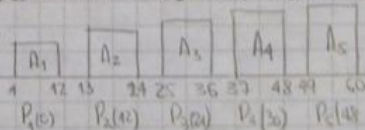 A₁ A₂ A₃ A₄ A₅
1 12 13 24 25 36 37 48 49 60
P₁(0) P₂(12) P₃(24) P₄(36) P₅(48)